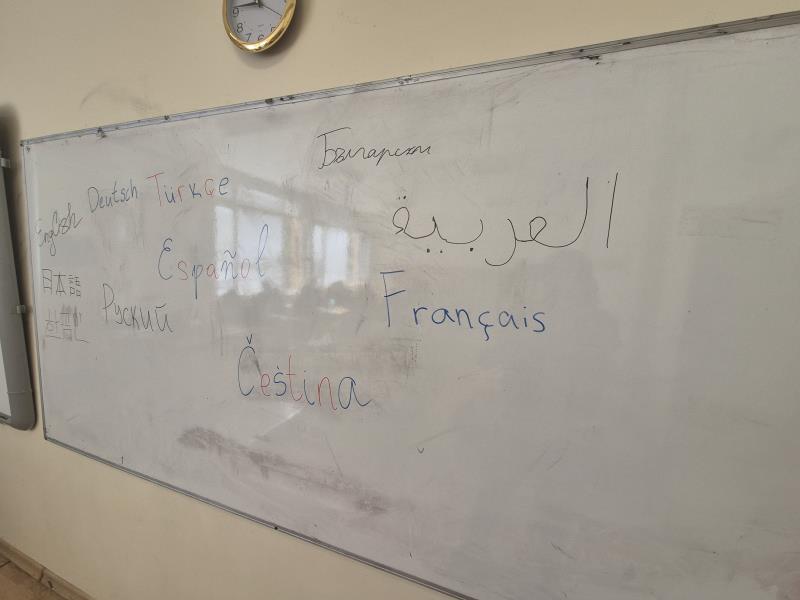 Български
English
Deutsch
Türkçe
العربية
Español
日本語
Руский
Français
Čeština